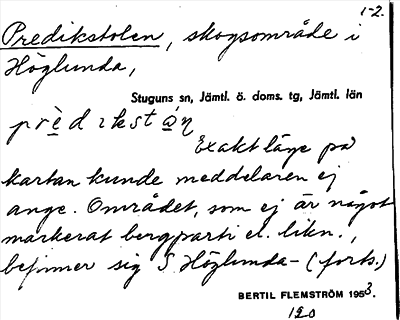 1-2.
Predikstolen, skogsområde i
Höglunda,
Stuguns sn, Jämtl. ö. doms. tg, Jämtl. län
prèdɩkstàn̥
Exakt läge på
kartan kunde meddelaren ej
ange. Området, som ej är något
markerat bergparti el. likn.,
befinner sig S Höglunda- (forts.)
BERTIL FLEMSTRÖM 1953.